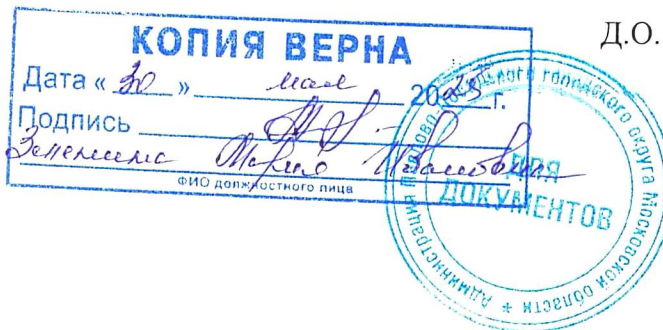 Д.О.
КОПИЯ ВЕРНА
Дата « 30 » мая 2025 г.
Подпись
Мария Ивановна
ФИО должностного лица
Администрация городского округа Московской области *
ДЛЯ
ДОКУМЕНТОВ